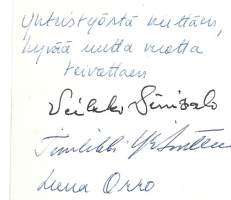 Yhteistyöstä kiittäen,
hyvää uutta vuotta
toivottaen
Veikko Sinisalo
Tuulikki
Leena Orro